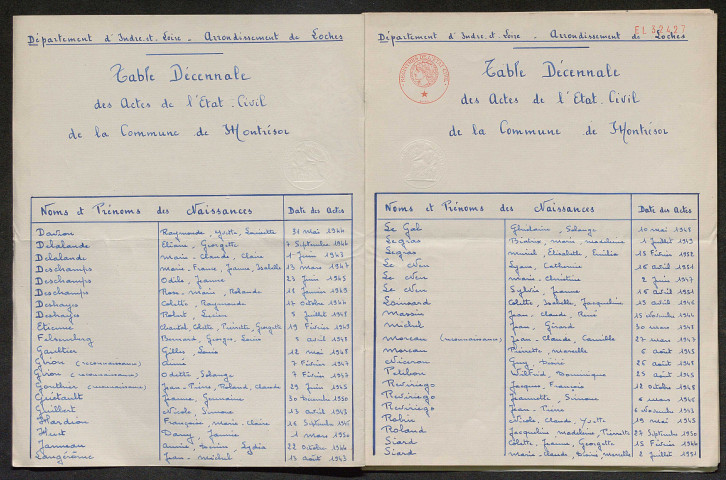 Département d'Indre-et-Loire - Arrondissement de Loches
Table Décennale
des Actes de l'Etat-Civil
de la Commune de Montrésor
Noms et Prénoms des Naissances Date des Actes
Davion Raymonde, Yvette, 31 mai 1944
Delalande Eliane, Georgette 7 Septembre 1946
Delalande Marie-Claude, Claire 1 Juin 1943
Deschamps Marie-France, Jeanne, Isabelle 13 mars 1947
Deschamps Odile, Jeanne 23 Juin 1945
Deschamps Rose-Marie, Rolande 11 Janvier 1949
Deshayes Colette, Raymonde 17 octobre 1944
Deshayes Robert, Lucien 8 Juillet 1948
Etienne Chantal, Colette, Pierrette, Georgette 19 Février 1949
Felsenberg Bernard, Georges, Louis 8 avril 1948
Gaultier Gilles, Louis 12 mai 1948
Giron (reconnaissance) Aimé 7 Février 1947
Giron (reconnaissance) Odette, Solange 7 Février 1947
Gonthier (reconnaissance) Jean-Pierre, Roland, Claude 29 Juin 1945
Guétault Jeanne, Germaine 30 Décembre 1950
Guilbert Nicole, Simone 13 avril 1943
Hardion Françoise, Marie-Claire 18 Septembre 1945
Huet Dany, Jannie 1 mars 1950
Janneau Annie, Lydia 22 Octobre 1946
Langérôme Jean-Michel 13 août 1943
Département d'Indre-et-Loire - Arrondissement de Loches
Table Décennale
des Actes de l'Etat-Civil
de la Commune de Montrésor
Noms et Prénoms des Naissances Date des Actes
Le Gal Ghislaine, Solange 10 mai 1948
Legras Béatrice, Marie, Madeleine 1 Juillet 1949
Legras Muriel, Elisabeth, Emilia 15 Février 1952
Le Neu Lyane, Catherine 18 avril 1951
Le Neu Marie-Christine 2 Juin 1947
Le Neu Sylvie, Jeanne 18 avril 1951
Loinsard Colette, Isabelle, Jacqueline 19 avril 1946
Massin Jean-Claude, René 15 Novembre 1944
Michel Jean, Girard 30 mars 1948
Moreau (reconnaissance) Jean-Claude, Camille 27 mars 1947
Moreau Pierrette, Marcelle 6 août 1945
Nicerou Guy, Denis 26 août 1948
Petibon Wilfrid, Dominique 25 août 1948
Reviriego Jacques, François 12 octobre 1948
Reviriego Jeannette, Simone 6 mars 1946
Reviriego Jean-Pierre 6 Novembre 1943
Robin Nicole, Claude, Yvette 19 mai 1945
Roland Jacqueline, Madeleine, Pierrette 27 Septembre 1950
Siard Colette, Jeanne, Georgette 15 Février 1944
Siard Marie-Claude, Marcelle 2 Juillet 1951